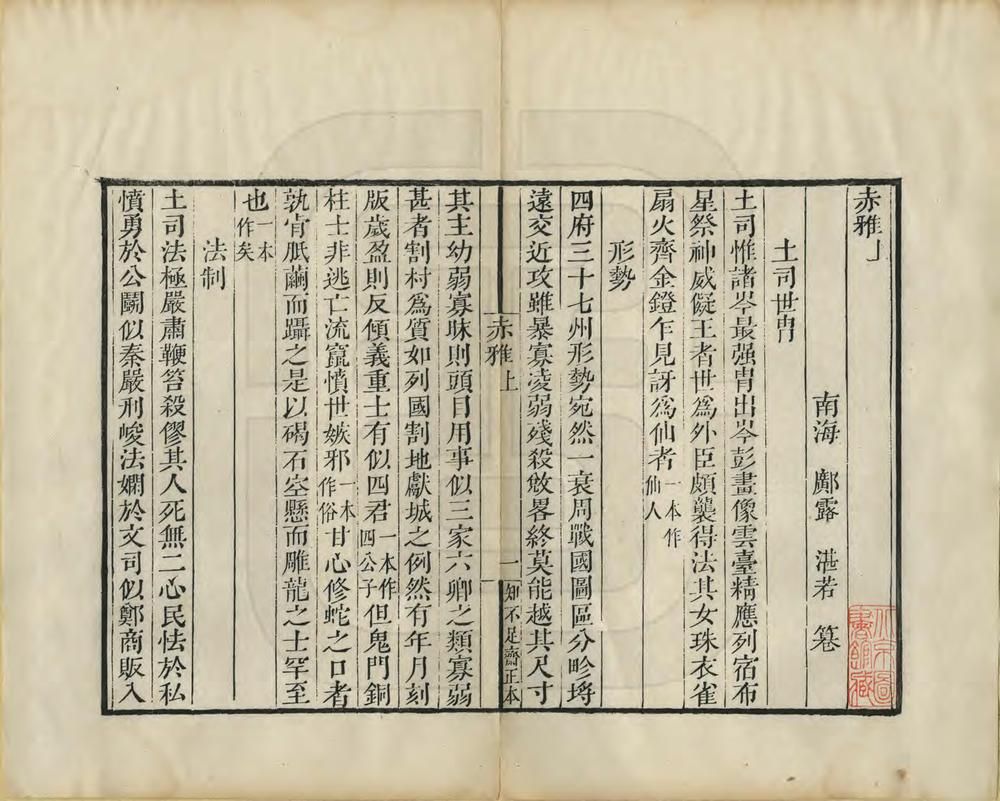 赤雅上
南海 鄺露 湛若 篹
土司世冑
土司惟諸岑最强冑出岑彭畫像雲臺精應列宿布
星祭神威儗王者世爲外臣頗襲得法其女珠衣雀
扇火齊金鐙乍見訝爲仙者一本作仙人
形勢
四府三十七州形勢宛然一衰周戰國圖區分畛埒
遠交近攻雖暴寡凌弱殘殺攽畧終莫能越其尺寸
赤雅上 一 知不足齋正本
其主幼弱寡昧則頭目用事似三家六卿之類寡弱
甚者割村爲質如列國割地獻城之例然有年月刻
版歲盈則反傾義重士有似四君一本作四公子但鬼門銅
柱士非逃亡流竄憤世嫉邪一本作俗甘心修蛇之口者
孰肯胝繭而躡之是以碣石空懸而雕龍之士罕至
也一本作矣
法制
土司法極嚴肅鞭笞殺僇其人死無二心民怯於私
憤勇於公鬭似秦嚴刑峻法嫻於文司似鄭商販入